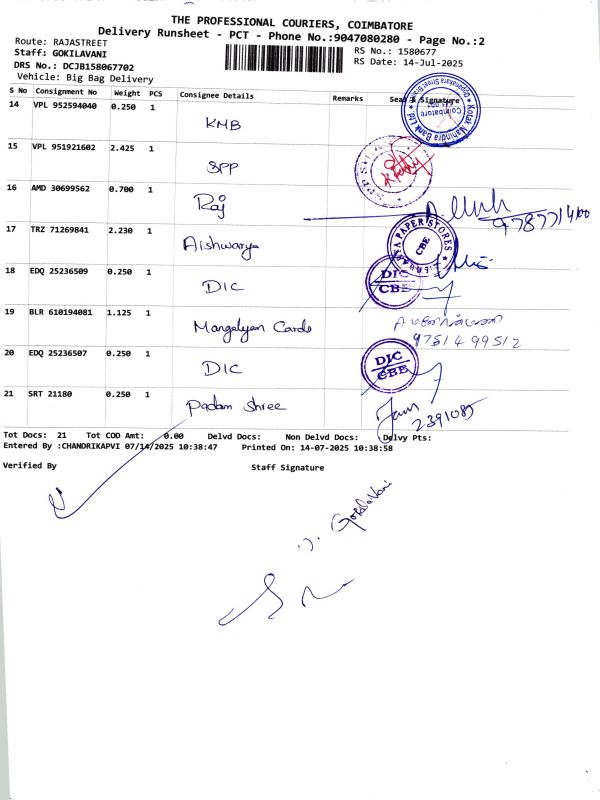 THE PROFESSIONAL COURIERS, COIMBATORE
Delivery Runsheet - PCT - Phone No.:9047080280 - Page No.:2
Route: RAJASTREET
Staff: GOKILAVANI
DRS No.: DCJB158067702
Vehicle: Big Bag Delivery
RS No.: 1580677
RS Date: 14-Jul-2025
S No Consignment No Weight PCS Consignee Details Remarks Seal & Signature
14 VPL 952594040 0.250 1 KMB
Kotak Mahindra Bank Ltd
Coimbatore
15 VPL 951921602 2.425 1 SPP
16 AMD 30699562 0.700 1 Raj
17 TRZ 71269841 2.230 1 Aishwarya
PAPER STORES
CBE
18 EDQ 25236509 0.250 1 DIC
DIC
CBE
19 BLR 610194081 1.125 1 Mangalyam Cards
97514 99512
20 EDQ 25236507 0.250 1 DIC
DIC
CBE
21 SRT 21180 0.250 1 Padam Shree
2391085
Tot Docs: 21 Tot COD Amt: 0.00 Delvd Docs: Non Delvd Docs: Delvy Pts:
Entered By :CHANDRIKAPVI 07/14/2025 10:38:47 Printed On: 14-07-2025 10:38:58
Verified By Staff Signature
Gokilavani